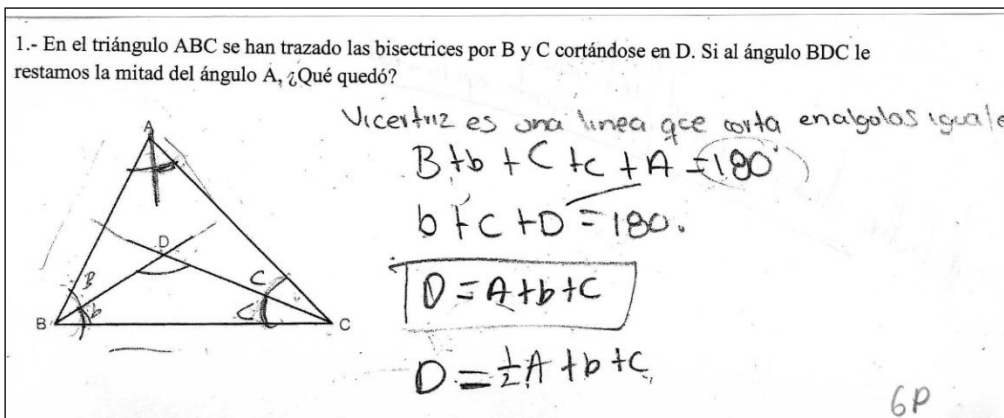 1.- En el triángulo ABC se han trazado las bisectrices por B y C cortándose en D. Si al ángulo BDC le
restamos la mitad del ángulo A, ¿Qué quedó?
Vicertriz es una linea qce corta enalgolos iguale
B+b+C+c+A=180°
b+c+D=180.
D=A+b+c
D=½A+b+c
A
D
B
b
C
c
B
C
6P